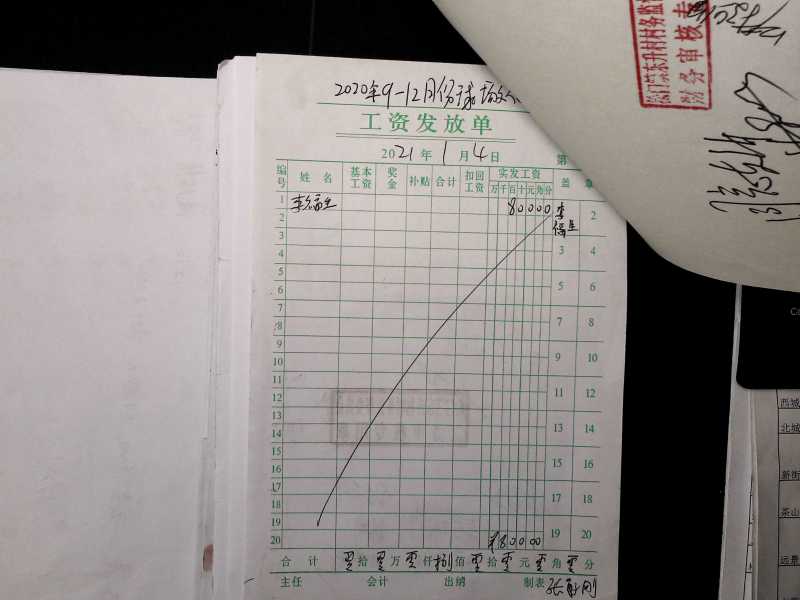 2020年9-12月份球场
工资发放单
2021年1月4日 第
编号 姓名 基本工资 奖金 补贴 合计 扣回工资 实发工资 盖 章
万千百十元角分
1 80000 李 2
2
3 3 4
4
5 5 6
6
7 7 8
8
9 9 10
10
11 11 12
12
13 13 14
14
15 15 16
16
17 17 18
18
19 19 20
20 ¥80000
合计 零拾零万零仟捌佰零拾零元零角零分
主任 会计 出纳 制表 张
东升村村务监
财务审核专
西城
北城
新街
茶山
远景